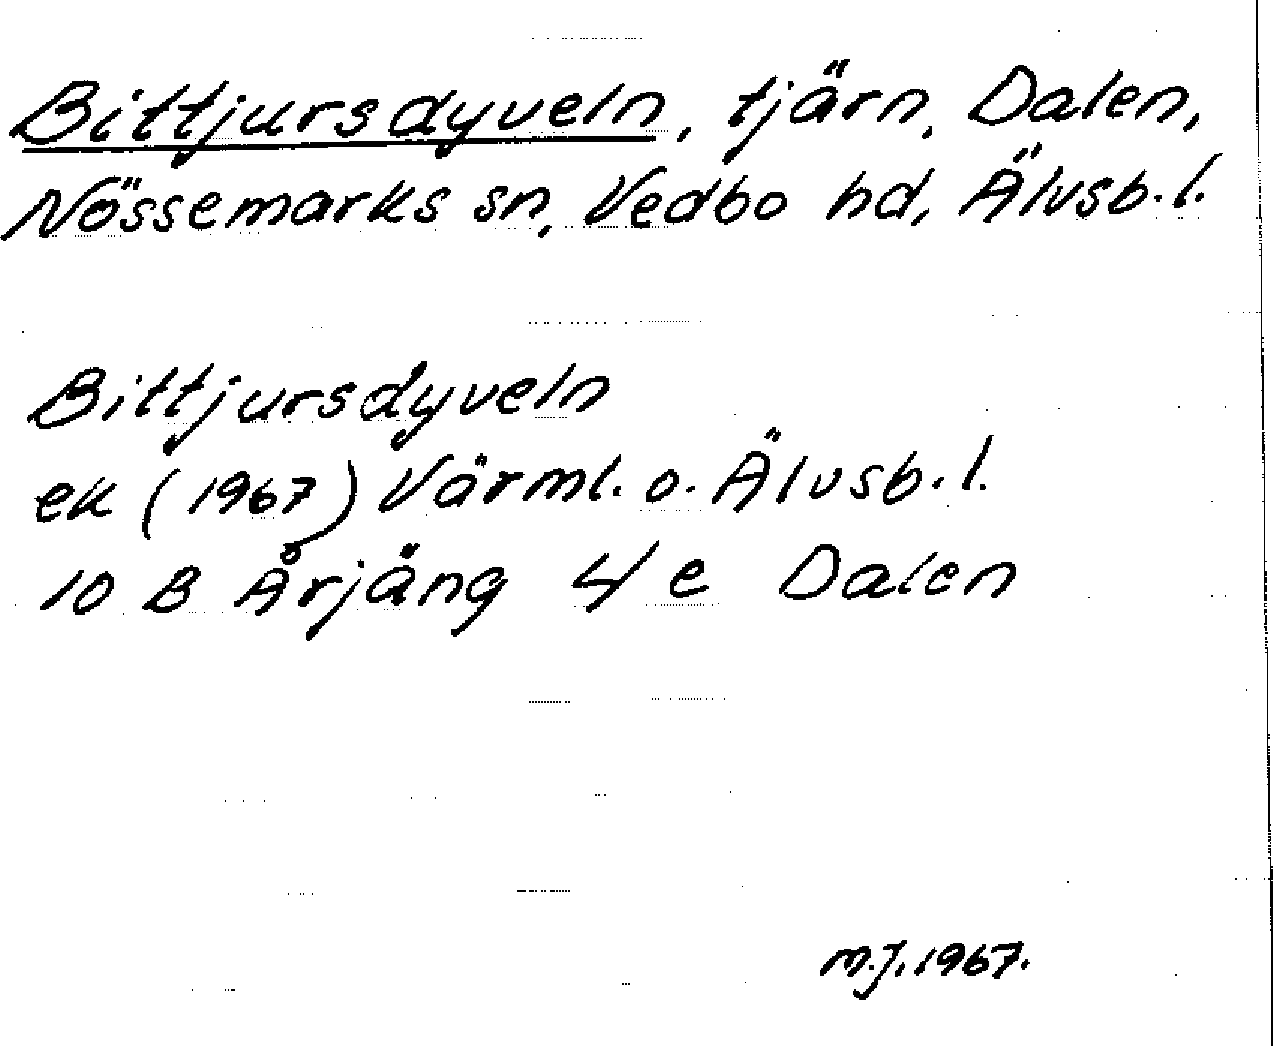 Bittjursdyveln, tjärn, Dalen,
Nössemarks sn, Vedbo hd, Älvsb.l.
Bittjursdyveln
ek (1967) Värml. o. Älvsb.l.
10 B Årjäng 4 e Dalen
M.J. 1967.